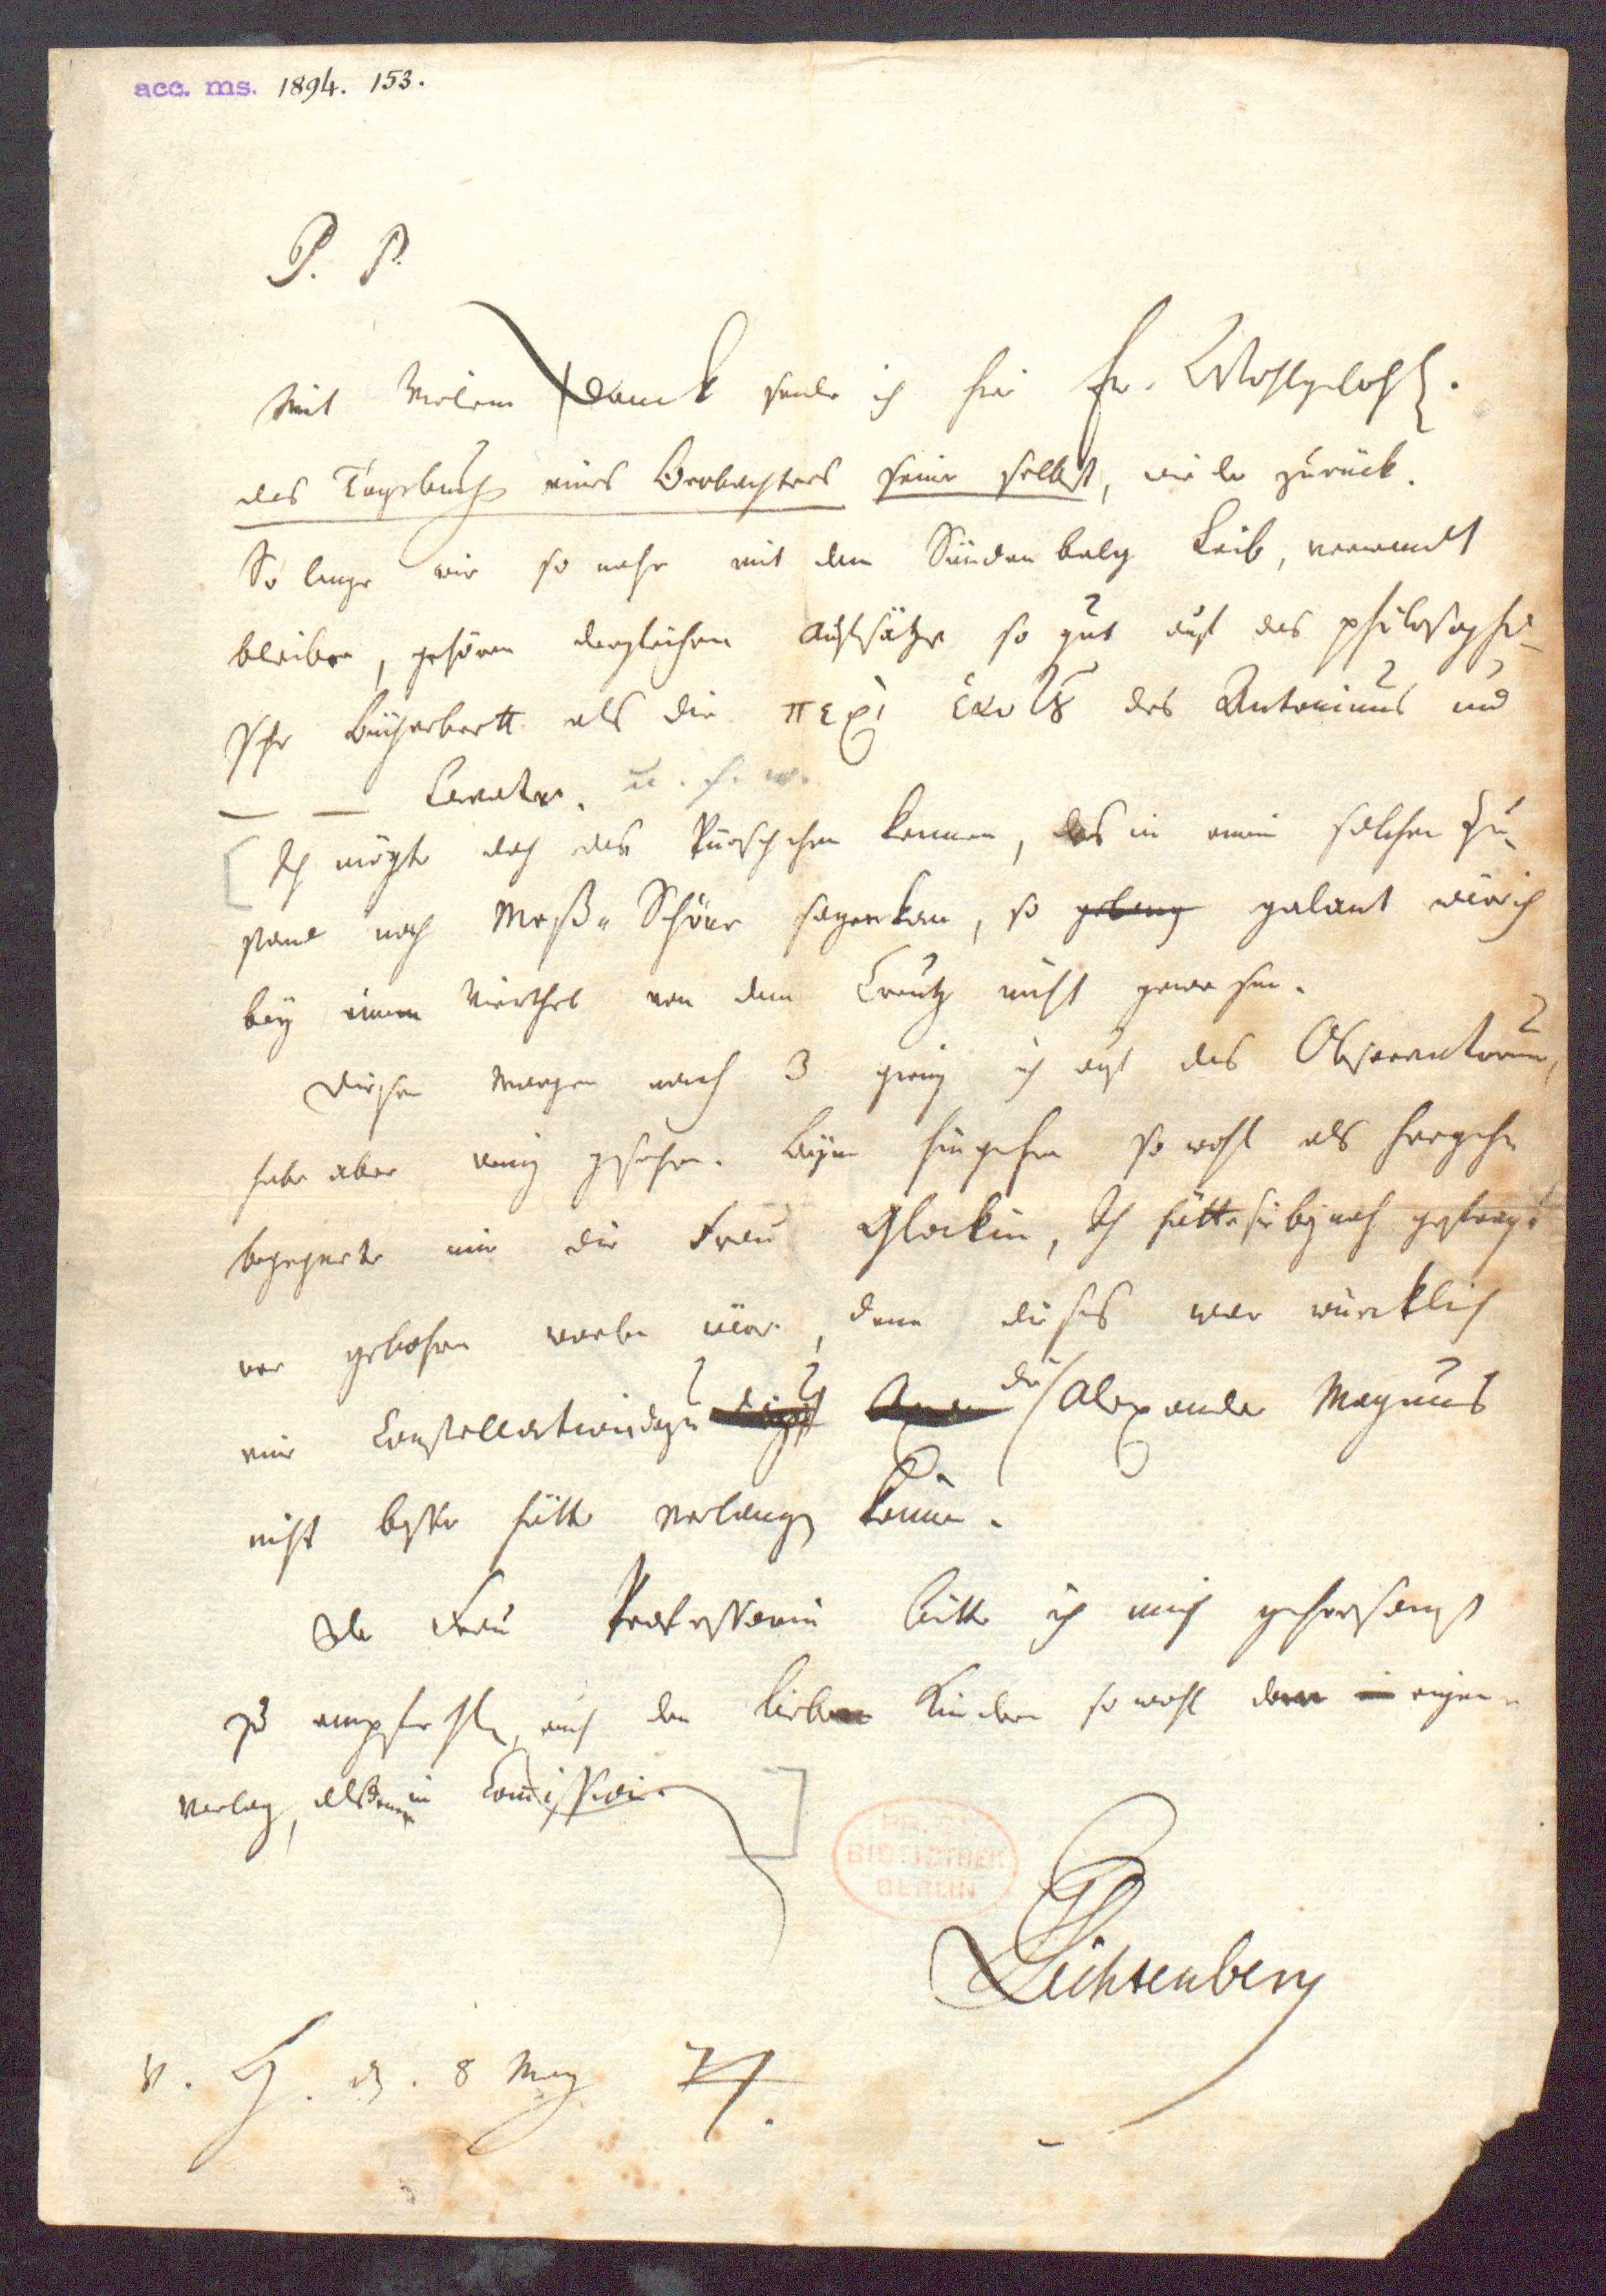 acc. ms. 1894. 153.
P. P.
Mit Vielem Danck sende ich hier Ew. Wohlgebohr.
das Tagebuch eines Beobachters seiner selbst, wieder zurück.
So lange wir so nahe mit dem Sündenbalg Leib, verwandt
bleiben, gehören dergleichen Aufsätze so gut auf das philosophi-
sche Bücherbrett als die περὶ ἑαυτȣ des Antoninus und
— — Lavater. u. s. w.
Ich mögte doch das Pürschchen kennen, das in einem solchen Zu-
stand noch Schöne sagen kan, so galant wär ich
bey einem Viertheil von dem Creutz nicht gewesen.
Diesen Morgen nach 3 gieng ich auf das Observatorium,
habe aber wenig gesehen. Beym hingehen so wohl als hergehen
begegnete mir die Frau Glockin, Ich hätte sie bey nah gefragt
wer gebohren worden wäre, denn dieses war würcklich
eine Constellation die Alexander Magnus
nicht besser hätte verlangen können.
Der Frau Professorin bitte ich mich gehorsamst
zu empfehlen, auch den lieben Kindern so wohl denen eigenen
Verlag, als denen in Commission.
Lichtenberg
V. H. d. 8 May 74.
PR. ST.
BIBLIOTHEK
BERLIN